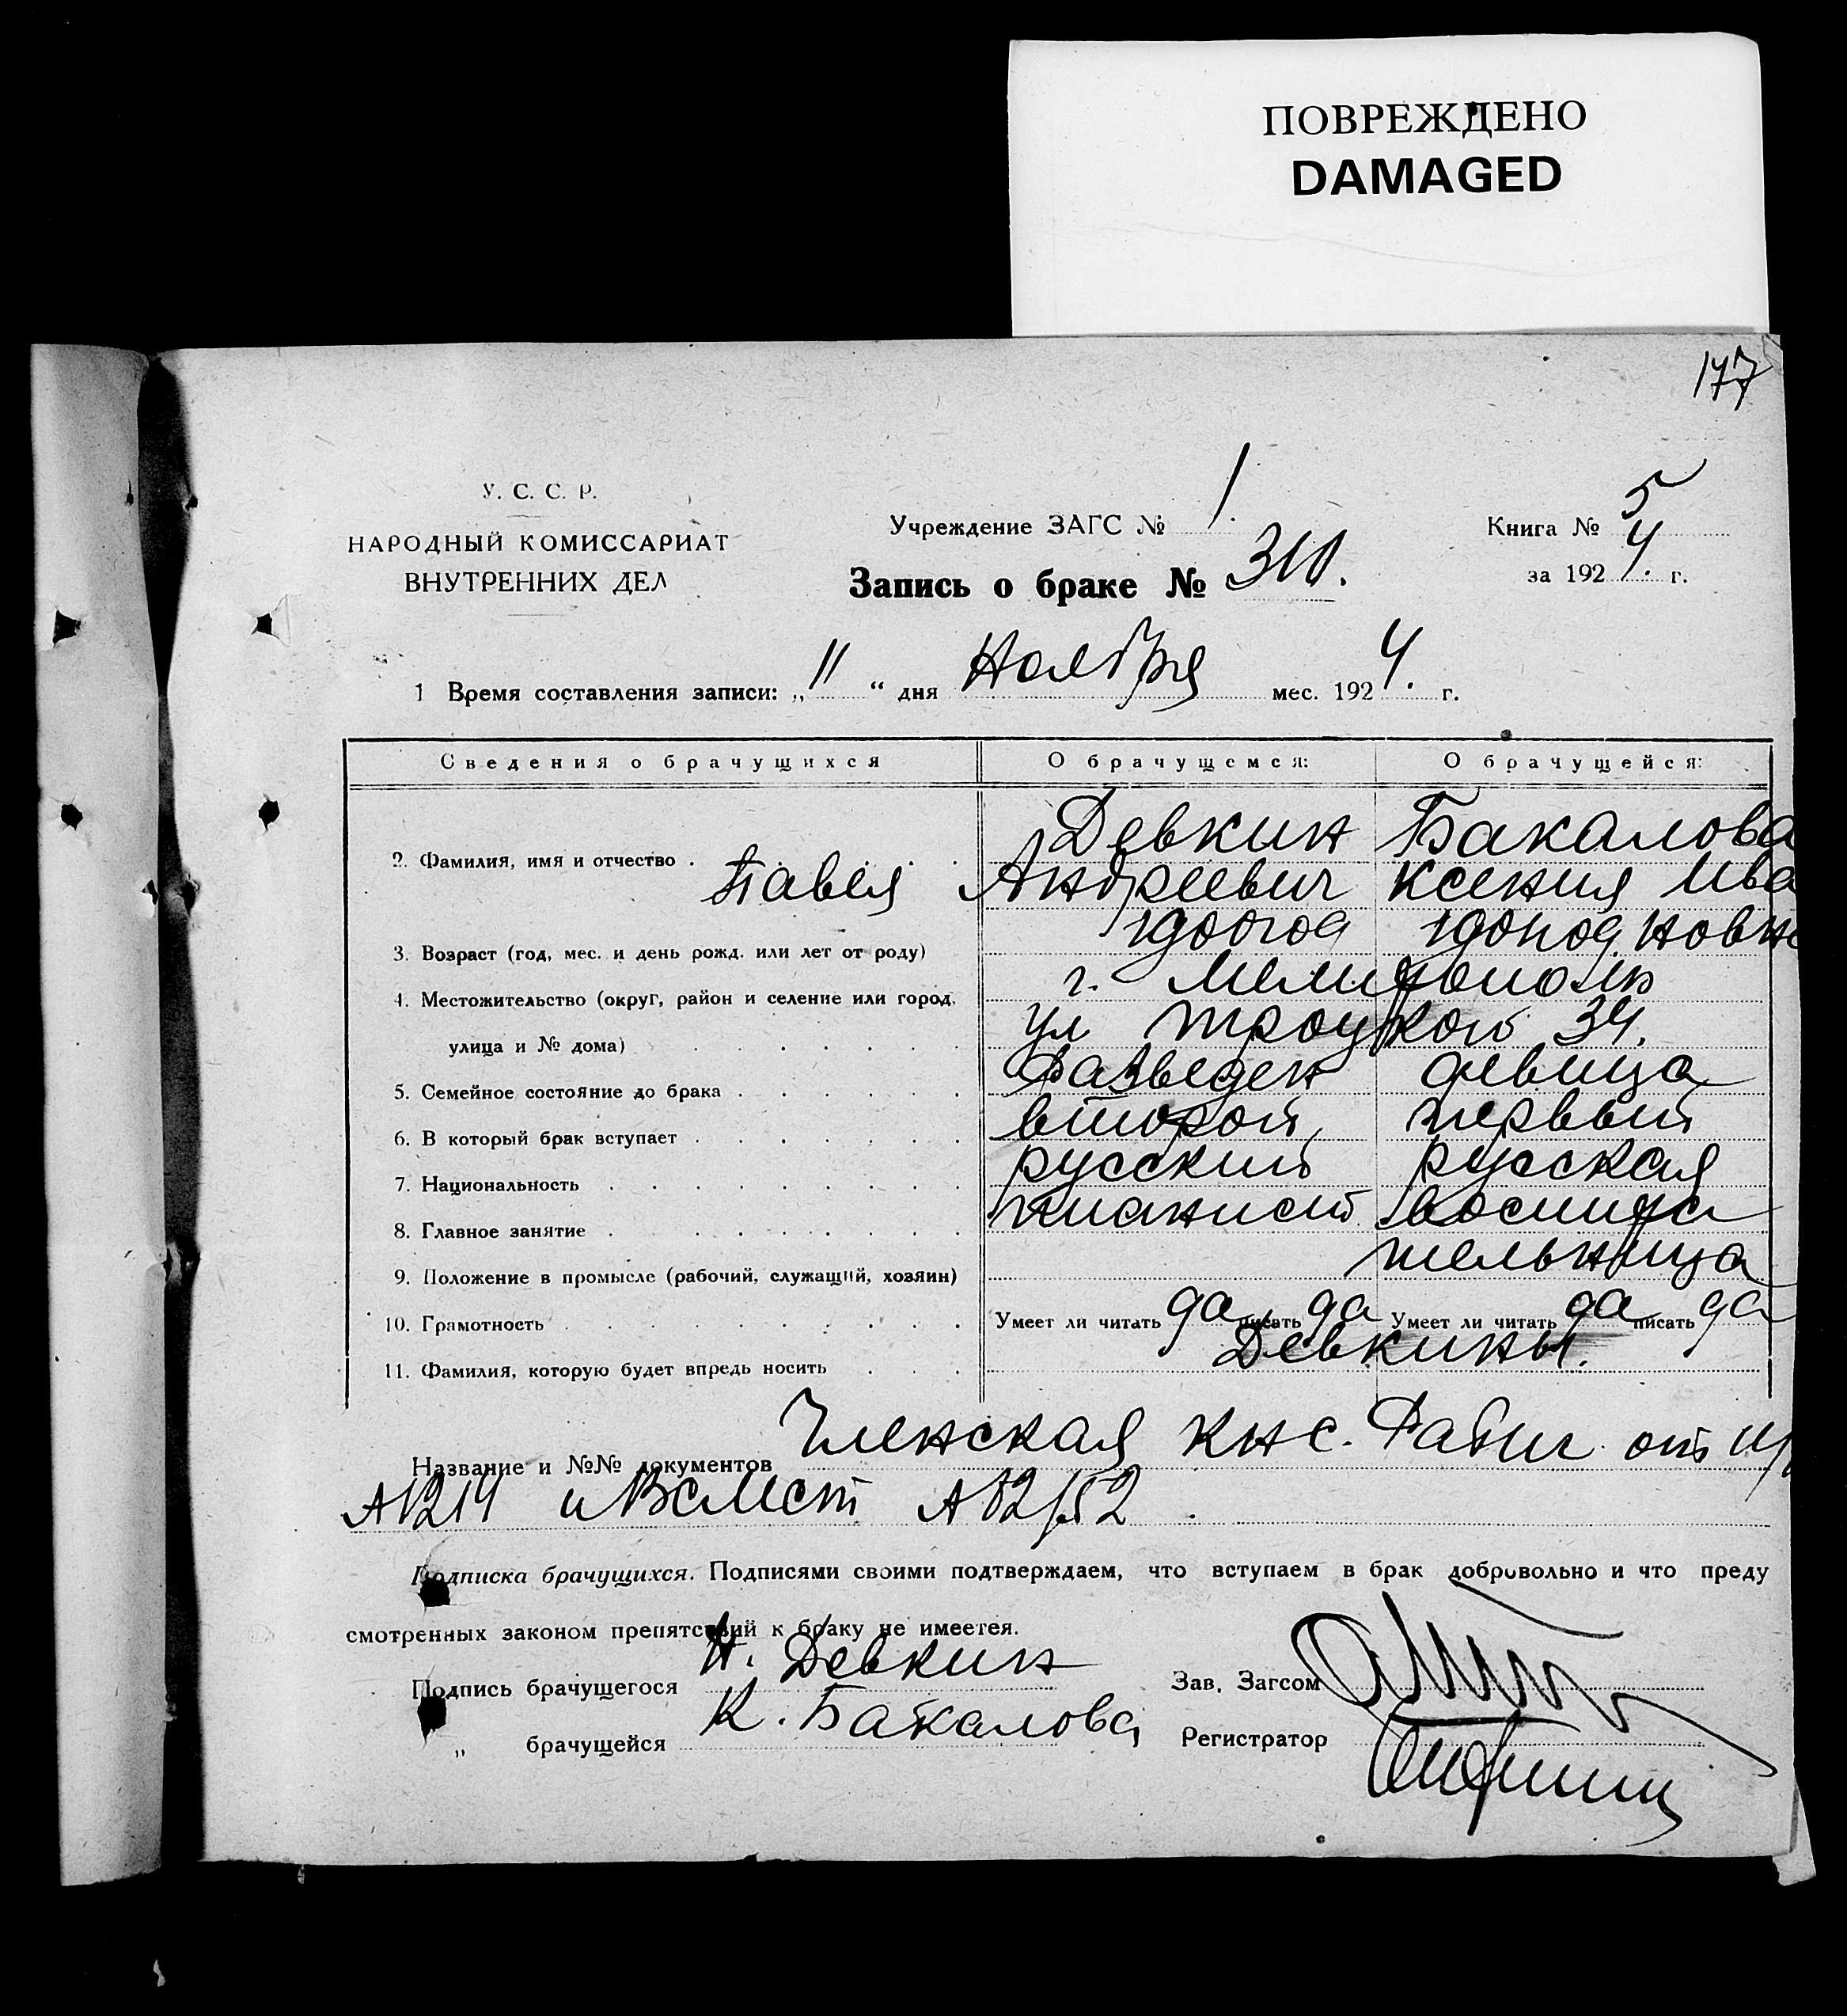 ПОВРЕЖДЕНО
DAMAGED
177
У. С. С. Р.
НАРОДНЫЙ КОМИССАРИАТ
ВНУТРЕННИХ ДЕЛ
Учреждение ЗАГС № 1.
Книга № 5
за 1924. г.
Запись о браке № 310.
1 Время составления записи: „11“ дня Ноября мес. 1924. г.
Сведения о брачущихся О брачущемся: О брачущейся:
Девкин Бакалова
2. Фамилия, имя и отчество . Павел Андреевич Ксения Ива
1900год новн
3. Возраст (год, мес. и день рожд. или лет от роду)
г. Мелитополь
4. Местожительство (округ, район и селение или город,
улица и № дома) ул Троцкого 34.
5. Семейное состояние до брака Разведен девица
6. В который брак вступает второй первый
7. Национальность русский русская
8. Главное занятие пианист воспита
тельница
9. Положение в промысле (рабочий, служащий, хозяин)
10. Грамотность Умеет ли читать да писать да Умеет ли читать да писать да
11. Фамилия, которую будет впредь носить Девкины.
Название и №№ документов Членская от
Подписка брачущихся. Подписями своими подтверждаем, что вступаем в брак добровольно и что преду
смотренных законом препятствий к браку не имеется.
Подпись брачущегося Девкин Зав. Загсом
„ брачущейся К. Бакалова Регистратор